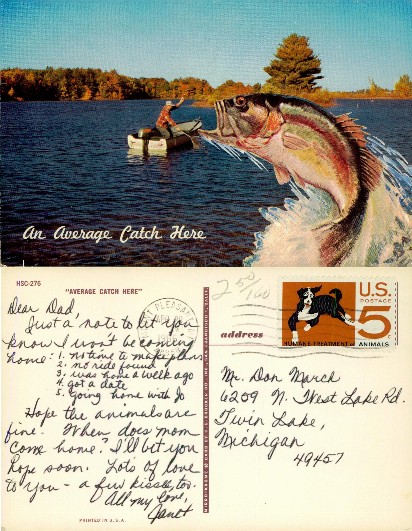 An Average Catch Here
HSC-276
"AVERAGE CATCH HERE"
250
/00
Dear Dad,
Just a note to let you
know I won't be coming
home: 1. no time to make plans
2. no ride found
3. was home a week ago
4. got a date
5. going home with Jo
Hope the animals are
fine. When does mom
come home? I'll bet you
hope soon. Lots of love
to you - a few kisses, too.
All my love,
Janet
PRINTED IN U.S.A.
PLEASANT
address
U.S.
POSTAGE
5
HUMANE TREATMENT OF ANIMALS
Mr. Don March
6259 N. West Lake Rd.
Twin Lake,
Michigan
49457